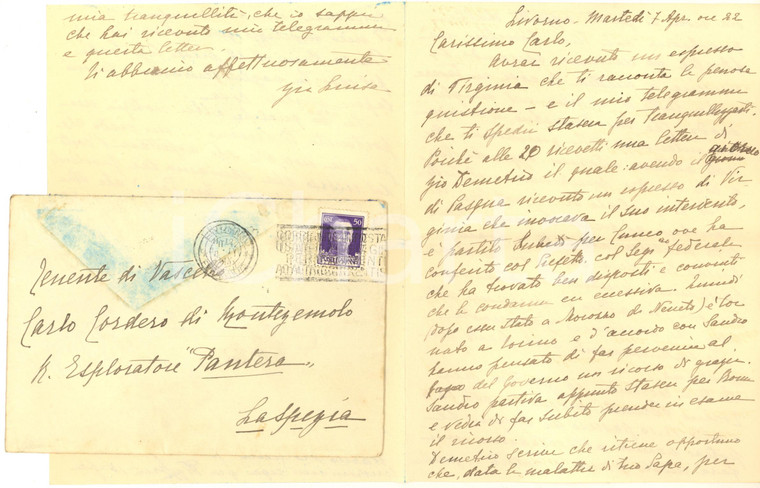 Livorno - Martedì 7 Apr. ore 22
Carissimo Carlo,
Avrai ricevuto un espresso
di Virginia che ti racconta la penosa
quistione - e il mio telegramma
che ti spedii stasera per tranquillizzarti.
Poichè alle 20 ricevetti una lettera di
zio Demetrio il quale: avendo il giorno
di Pasqua ricevuto un espresso di Vir-
ginia che invocava il suo intervento,
è partito subito per Cuneo ove ha
conferito col Prefetto, col Segr.rio federale
che ha trovato ben disposti e convinti
che la condanna era eccessiva. Quindi
(dopo esser stato a Morozzo da Nenito) è tor
nato a Torino e d'accordo con Sandro
hanno pensato di far pervenire al
Capo del Governo un ricorso di grazia.
Sandro partiva appunto stasera per Roma
e vedrà di far subito prendere in esame
il ricorso.
Demetrio scrive che ritiene opportuno
che, data la malattia di tuo Papà, per
mia tranquillità, che io sappia
che hai ricevuto mio telegramma
e questa lettera.
Ti abbraccio affettuosamente
zia Luisa
Tenente di Vascello
Carlo Cordero di Montezemolo
R. Esploratore "Pantera"
La Spezia
50